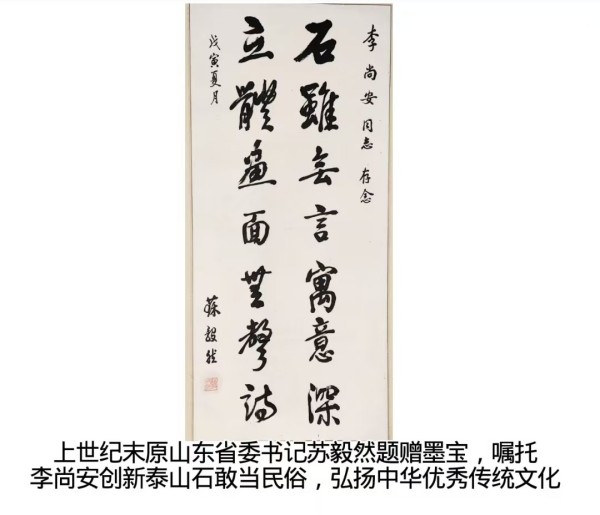 李尚安同志 存念
石雖無言寓意深
立體畫面無聲詩
戊寅夏月
蘇毅然
上世纪末原山东省委书记苏毅然题赠墨宝，嘱托
李尚安创新泰山石敢当民俗，弘扬中华优秀传统文化